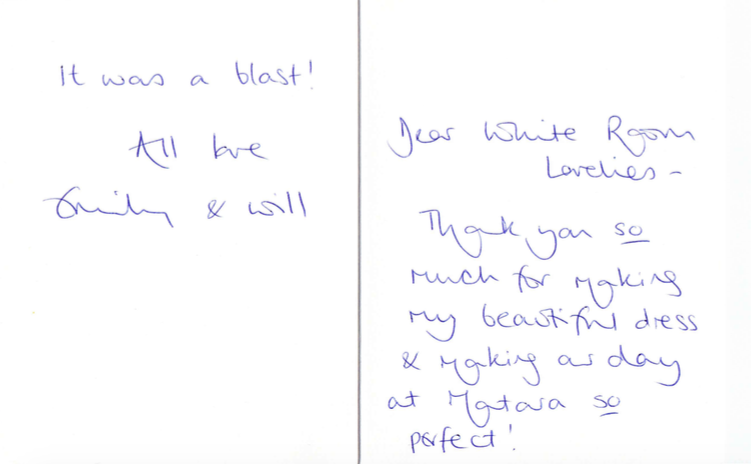 It was a blast!
All love
Emily & Will
Dear White Room
Lovelies -
Thank you so
much for making
my beautiful dress
& making our day
at Matara so
perfect!